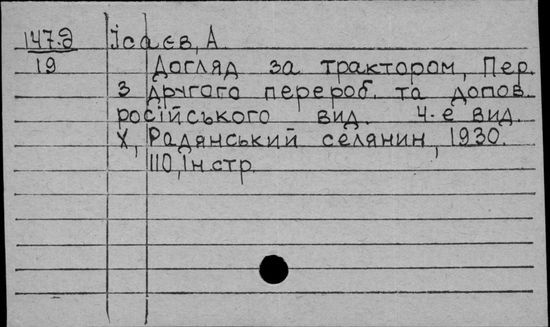 147.Д Ісаєв, А
19 Догляд за трактором, Пер.
з другого перероб. та допов.
російського вид. 4-е вид.
Х, Радянський селянин, 1930.
110, Ін.стр.